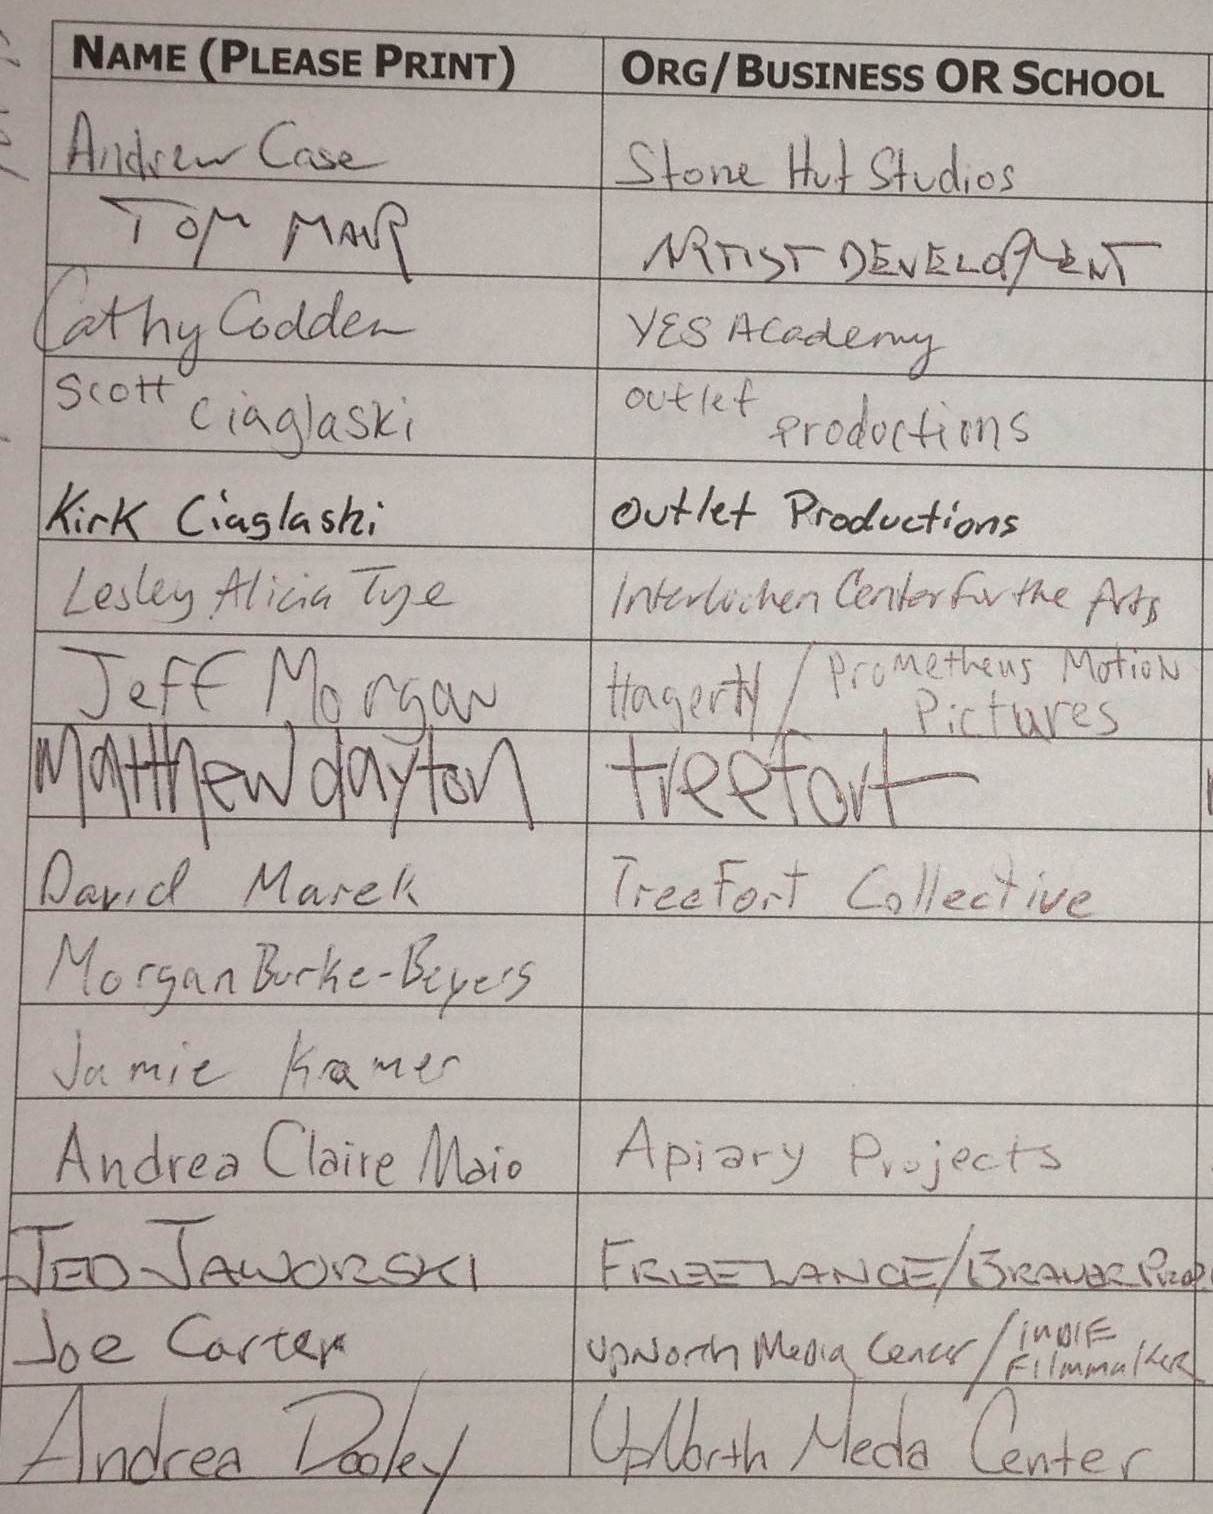 NAME (PLEASE PRINT) ORG/BUSINESS OR SCHOOL
Andrew Case Stone Hut Studios
TOM MAIR ARTIST DEVELOPMENT
Cathy Codden YES Academy
Scott Ciaglaski outlet productions
Kirk Ciaglaski Outlet Productions
Lesley Alicia Tye Interlochen Center for the Arts
Jeff Morgan Hagerty / Prometheus Motion Pictures
Matthew dayton treefort
David Marek TreeFort Collective
Morgan Burke-Beyers
Jamie Kramer
Andrea Claire Maio Apiary Projects
JED JAWORSKI FREELANCE/BRAUER PROD
Joe Carter UpNorth Media Center / INDIE Filmmaker
Andrea Dooley UpNorth Media Center